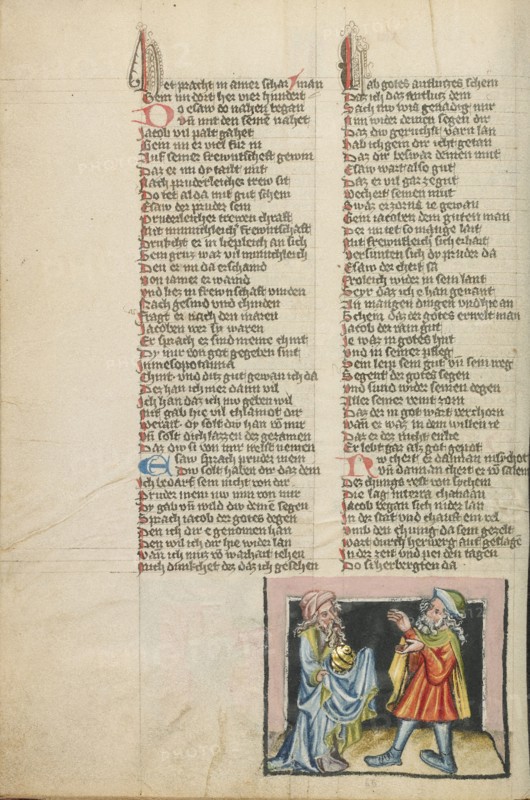 Het pracht in ainer schar man
Gem im dort her vier hundert
Do esaw do nahen began
Vñ mit den seinē nahet
Jacob vil palt gahet
Gem im er viel für in
Auf seiner frewntscheft gewin
Daz er im do tailt mit
Nach pruderleicher trew sit
Do tet alda mit gut schem
Esaw der pruder sein
Pruderleicher trewen chraft
Mit minnichleich frewntschaft
Drucht er in hepleich an sich
Sein gruz war vil minnichleich
Den er im da erschaind
Von iamer er waind
Vnd her in frewnschaft vinden
Nach gesind vnd chinden
Fragt er nach den maren
Jacoben wer sy waren
Er sprach ez sind meine chint
Dy mir von got gegeben sint
In mesopotania
Chint vnd ditz gut gewan ich da
Der han ich mer dann vil
Ich han daz ich nv geben wil
Mit gab hie vil chlainot dir
Daz dw si von mir nicht nemen
Esaw sprach pruder mein
Dw solt haben dir daz dein
Ich bedarf sein nicht von dir
Pruder mein nw nim von mir
Dy gab vñ wild dw deinē segen
Sprach iacob der gotes degen
Den ich dir e genomen han
Den wil ich dir hie wider lan
Wañ ich muz vō warhait iehen
Mich dunkchet des daz ich gesehen
Hab gotes antlutzes schein
Daz ich daz antlutz dein
Sach dw wis genadig mir
Nim wider deinen segen dir
Daz dw geruchst varn lan
Hab ich gem dir icht getan
Daz dir beswar deinen mut
Esaw wart also gut
Daz er vil gar zegut
Wechert seinen mut
Swaz er zorns ie gewan
Gem iacoben dem guten man
Der im tet so mange lait
Mit frewntleich sicherhait
Versunten sich dy pruder da
Esaw der chert sa
Froleich wider in sein lant
Seyr daz ich e han genant
In mangen dingen vnd hie an
Schein daz der gotes erwelt man
Jacob der rain gut
Je waz in gotes hut
Vnd in seiner pfleg
Sein leip sein gut vñ sein weg
Segent der gotes segen
Vnd sund wider seinen degen
Aller seiner veint zorn
Daz der in got wart verchorn
Wañ er waz in dem willen ie
Daz er der nicht enlie
Er lebt gar als got gepot
Nw chert er dannan
Vñ dannan chert er vō salem
Des chunigs vest von sychem
Die lag in terra chanaan
Jacob began sich nider lan
In der stat vnd chauft ein vel
Vmb den chunig da sein gezelt
Wart durch herberg auf geslagē
In der zeit vnd pei den tagen
Do si herbergten da